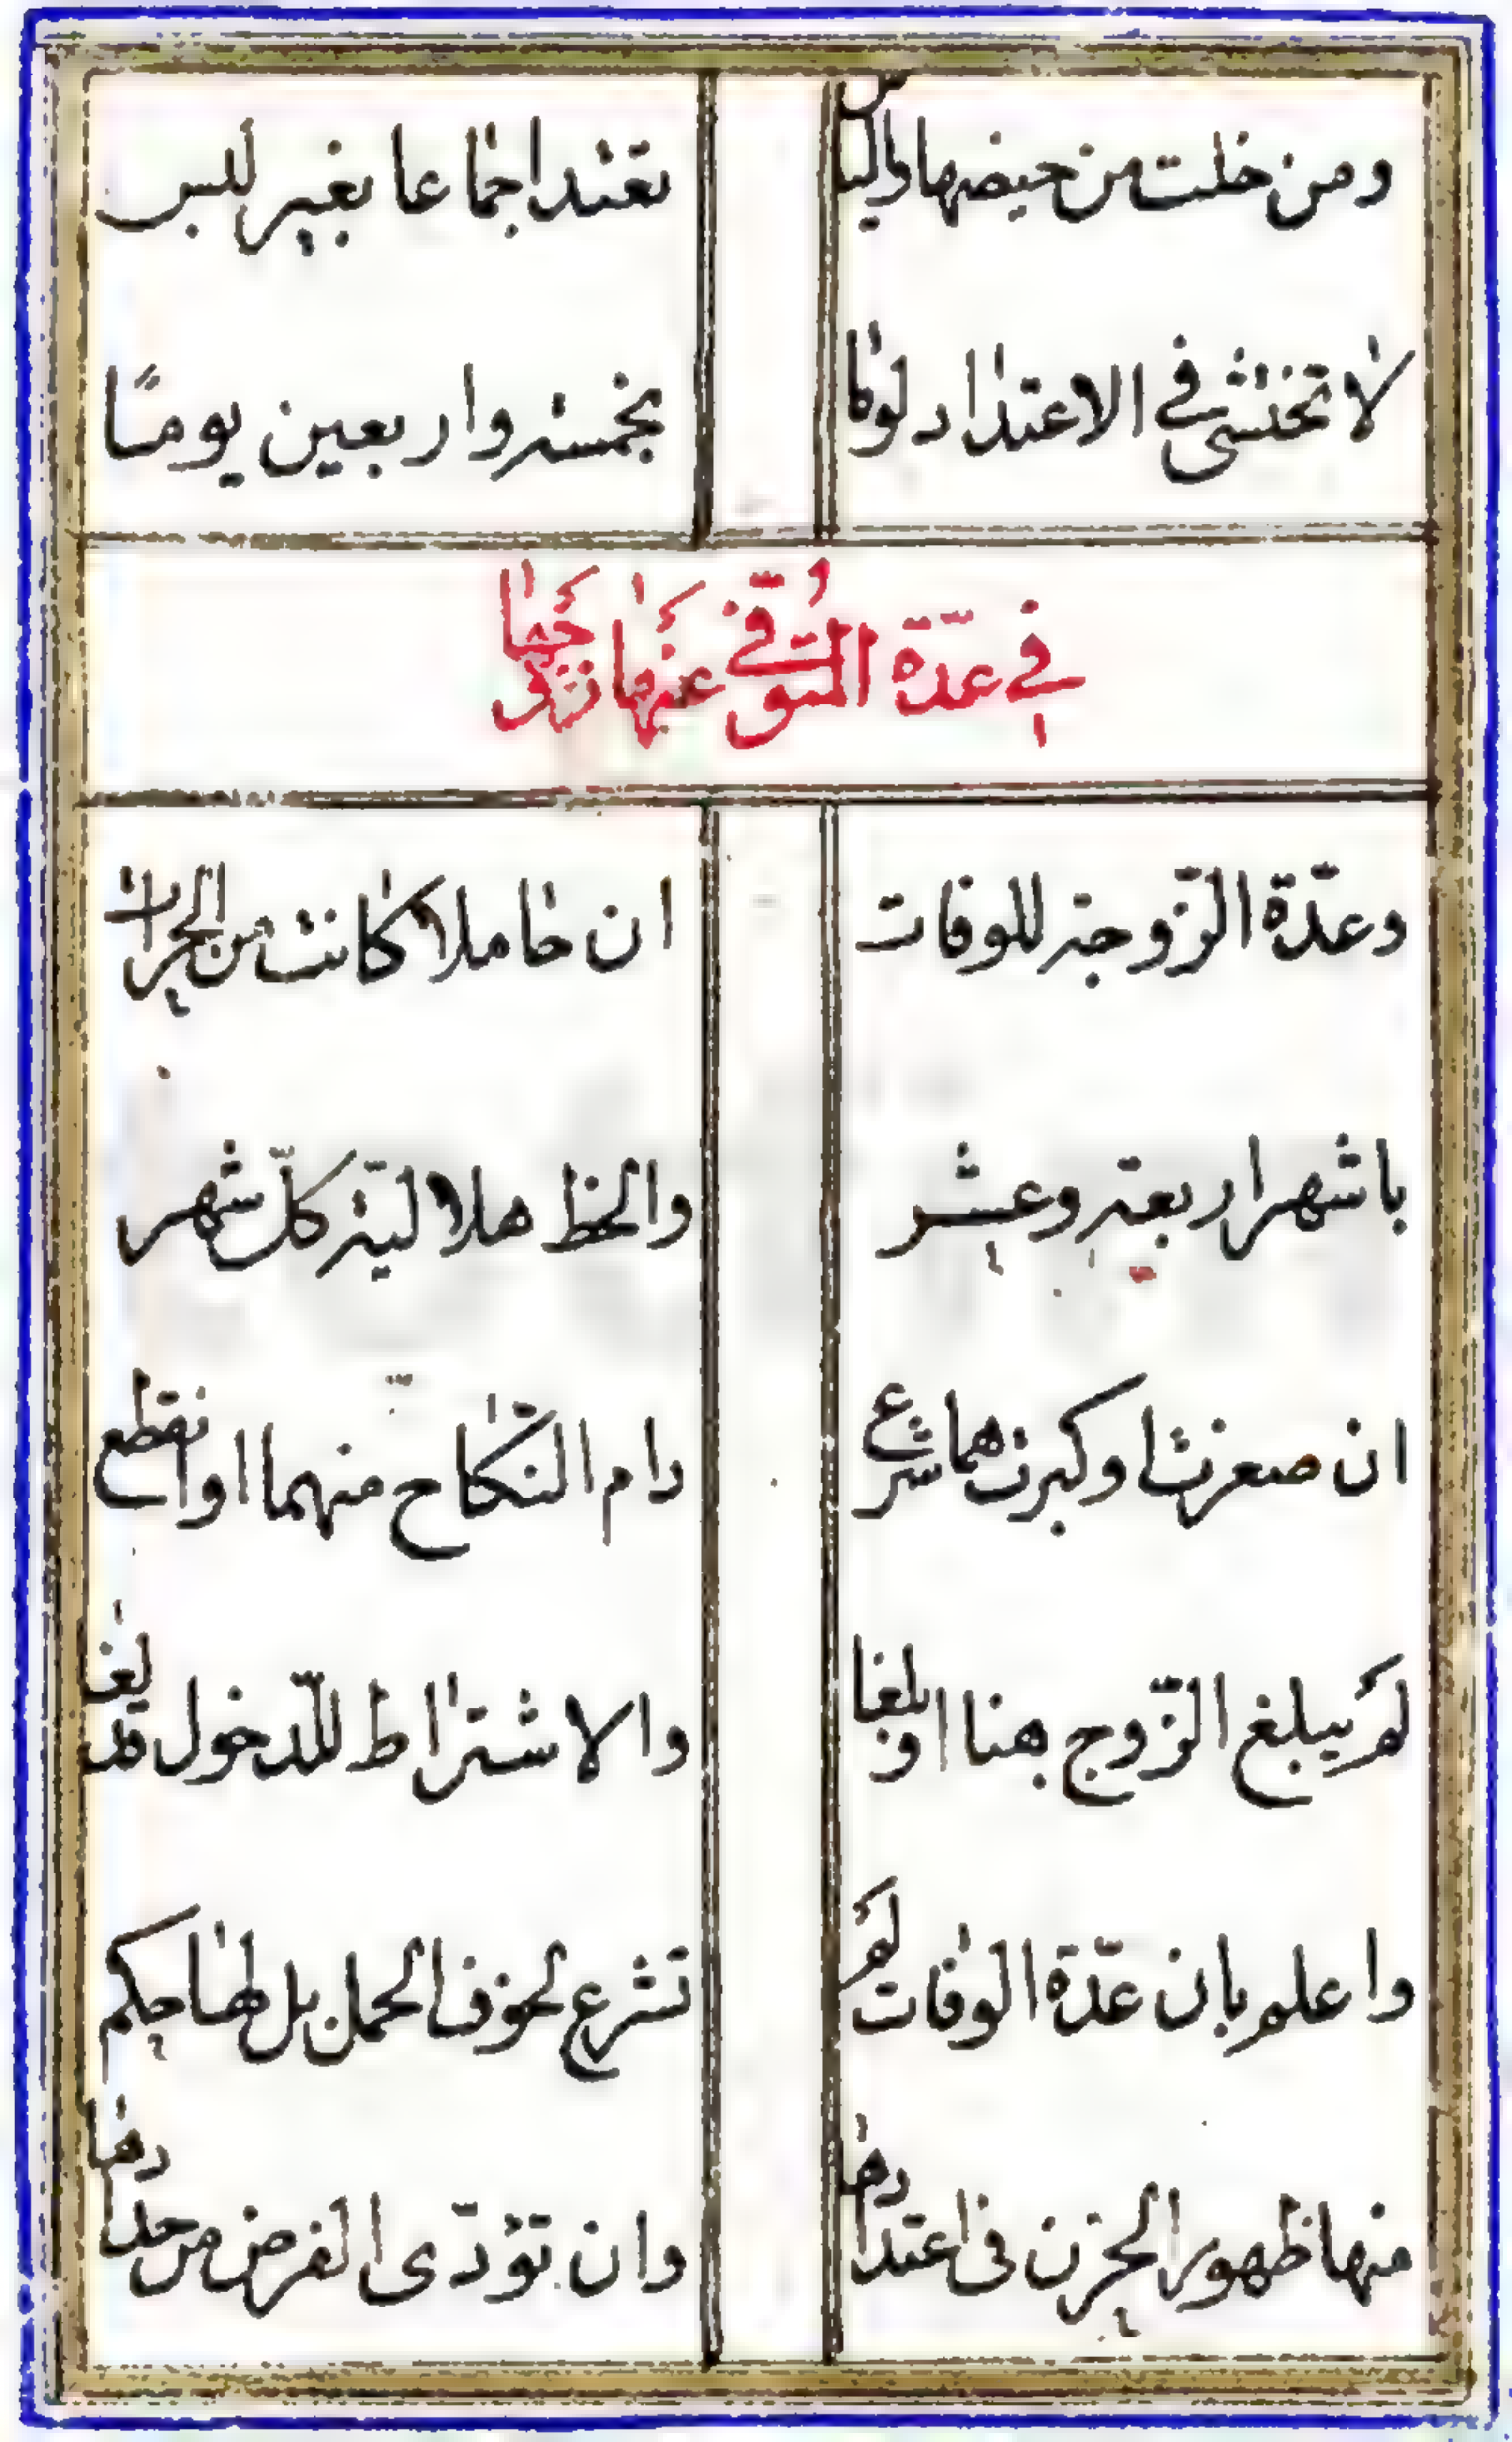 ومن خلت من حيضها واليأس تعتد اجماعا بغير لبس
لا تختشى فى الاعتداد لوما بخمسة واربعين يومًا
فى عدّة المُتوفّى عنها زوجها
وعدّة الزّوجة للوفات ان حاملا كانت من الحرات
باشهر اربعة وعشر والحظ هلالية كلّ شهر
ان صغرت او كبرت هما شرع دام النّكاح منهما او انقطع
لم يبلغ الزّوج هنا او بلغا والاشتراط للّدخول قد لغى
واعلم بان عدّة الوفات لم تشرع لخوف الحمل بل لها حكم
منها ظهور الحزن فى اعتدادها وان تؤدّى الفرض من حدادها